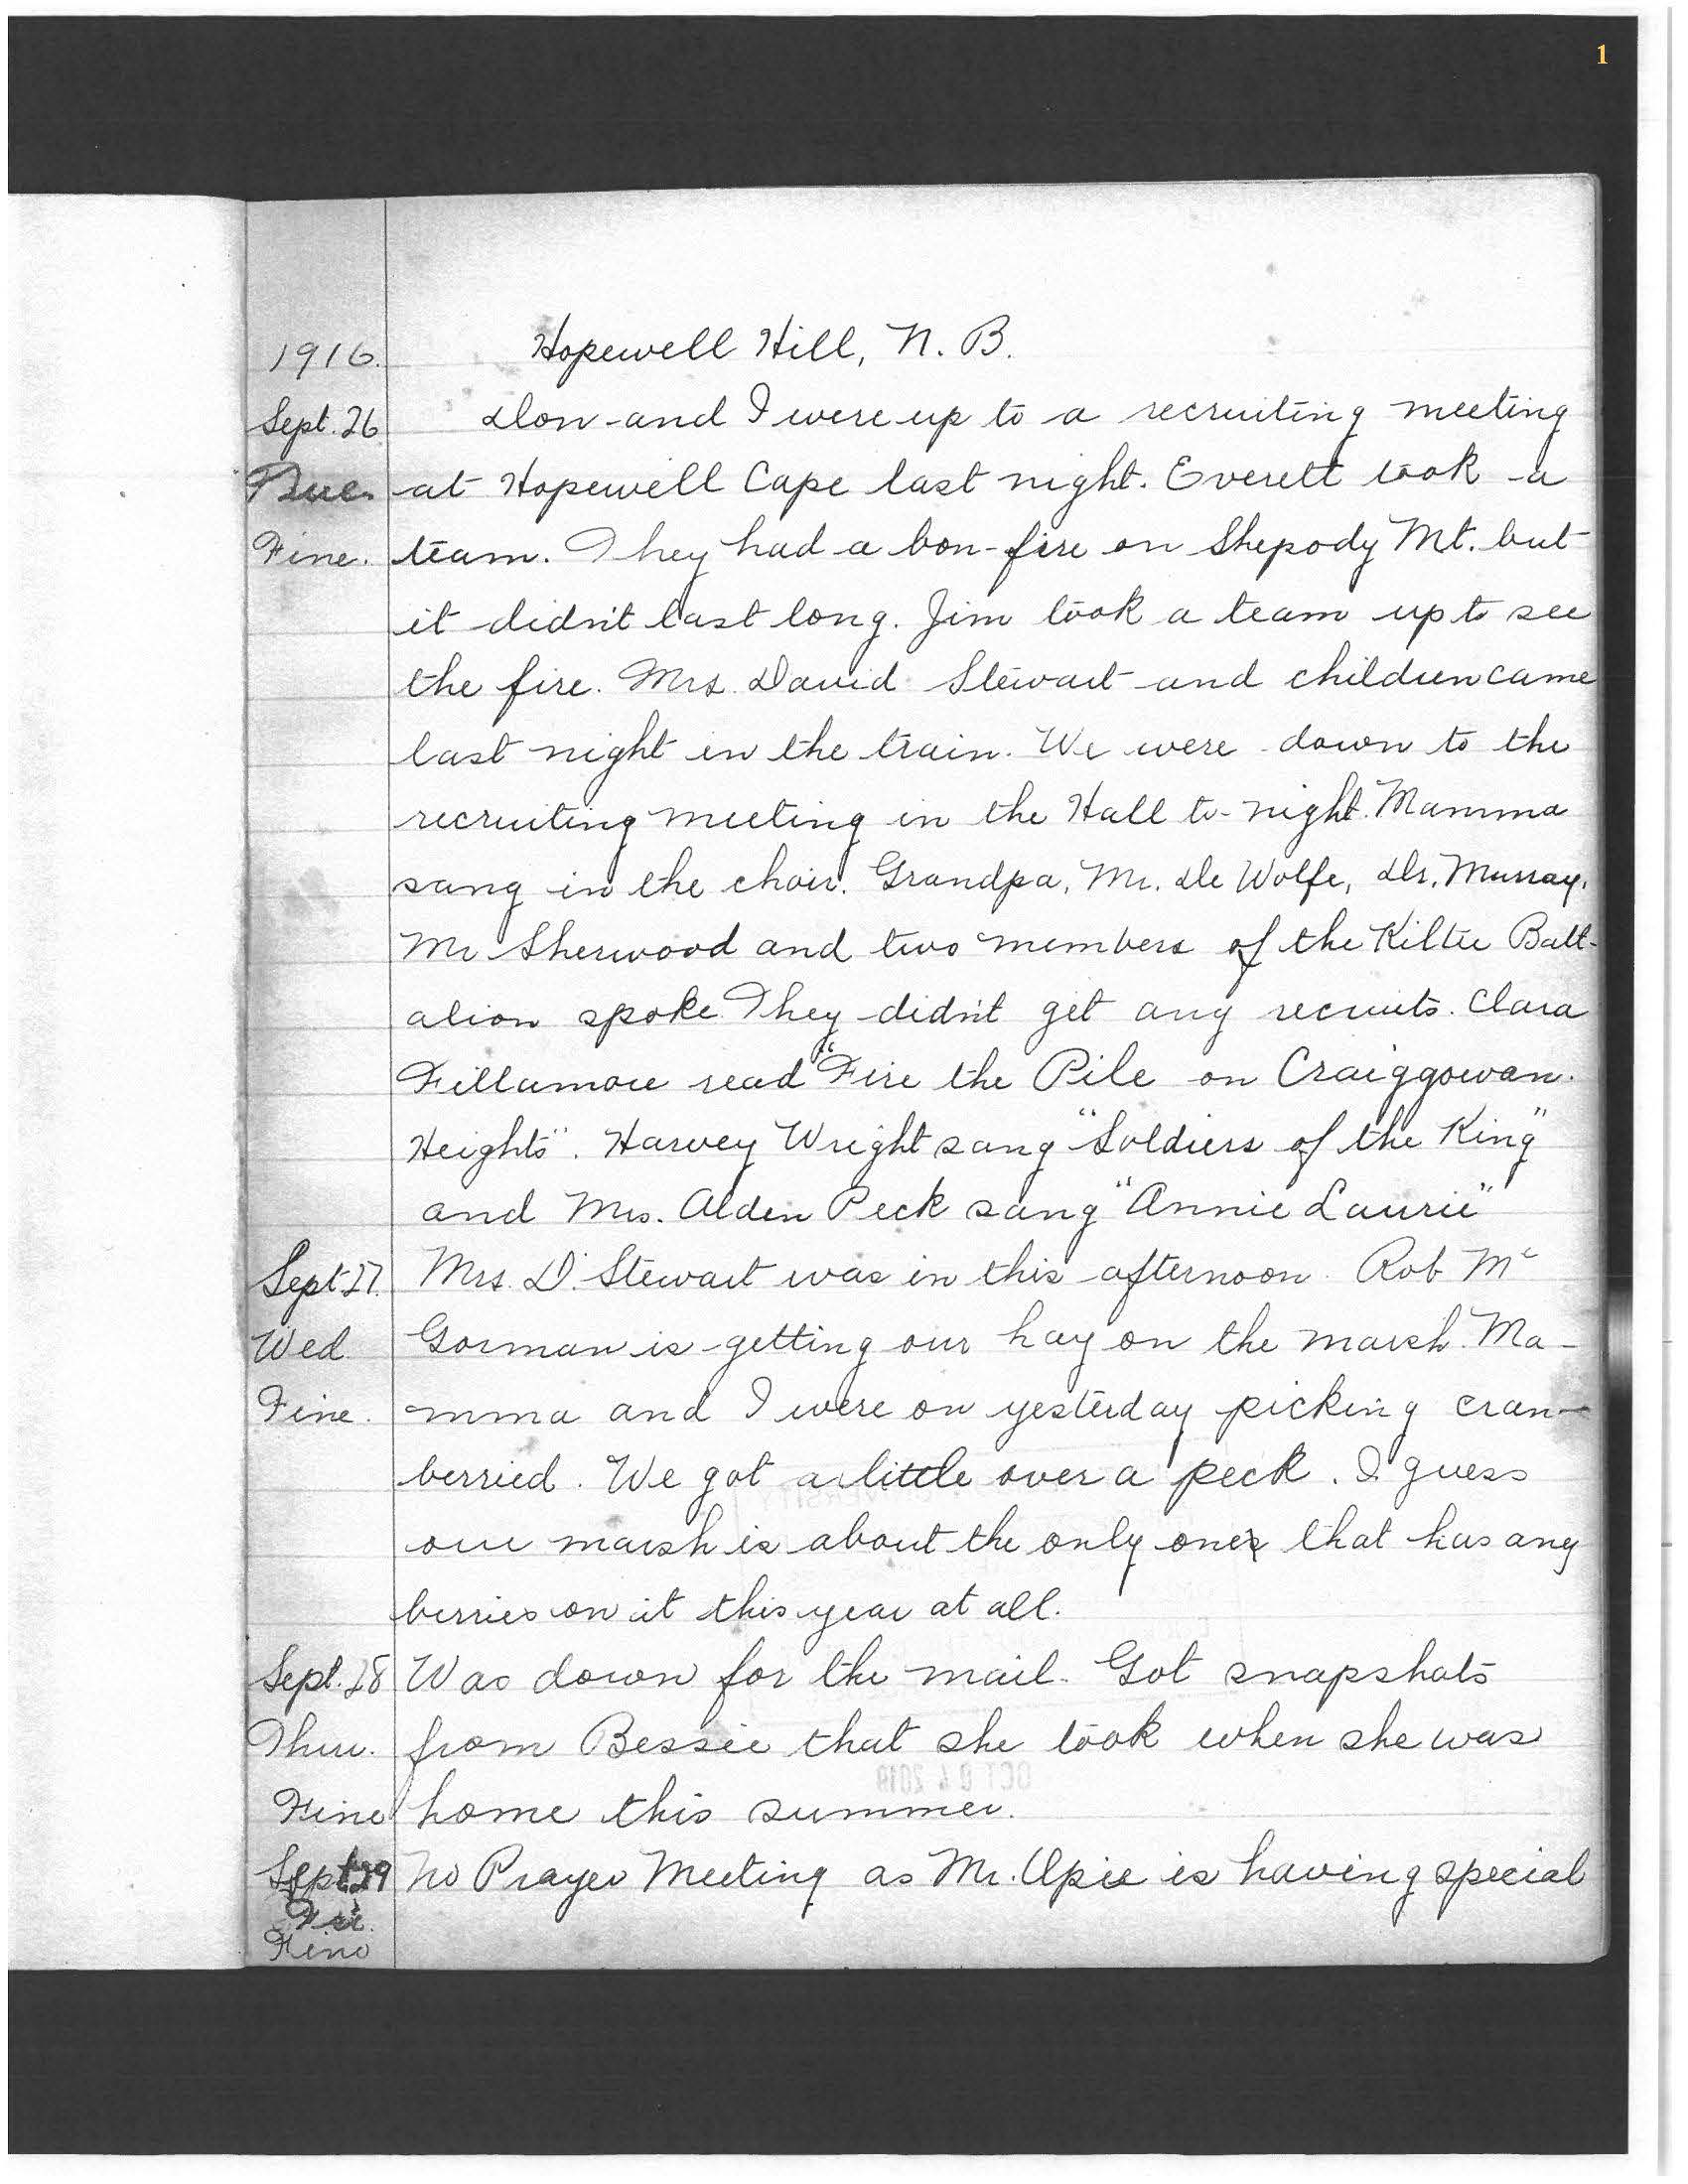 1
1916. Hopewell Hill, N. B.
Sept. 26 Don and I were up to a recruiting meeting
Tues at Hopewell Cape last night. Everett took a
Fine. team. They had a bon-fire on Shepody Mt. but
it didn't last long. Jim took a team up to see
the fire. Mrs. David Stewart and children came
last night in the train. We were down to the
recruiting meeting in the Hall to-night. Mamma
sang in the choir. Grandpa, Mr. De Wolfe, Dr. Murray,
Mr Sherwood and two members of the Kiltie Batt-
alion spoke They didn't get any recruits. Clara
Fillamore read "Fire the Pile on Craiggowan
Heights". Harvey Wright sang "Soldiers of the King"
and Mrs. Alden Peck sang "Annie Laurie"
Sept 27. Mrs. D. Stewart was in this afternoon. Rob Mc
Wed Gorman is getting our hay on the marsh. Ma-
Fine. mma and I were on yesterday picking cran-
berried. We got a little over a peck. I guess
our marsh is about the only ones that has any
berries on it this year at all.
Sept. 28 Was down for the mail. Got snapshots
Thur. from Bessie that she took when she was
OCT 04 2019
Fine home this summer.
Sept 29 No Prayer Meeting as Mr. Opie is having special
Fri.
Fine